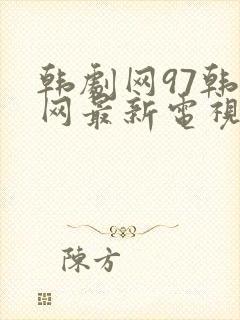 韩劇网97韩
网最新電視
陳方